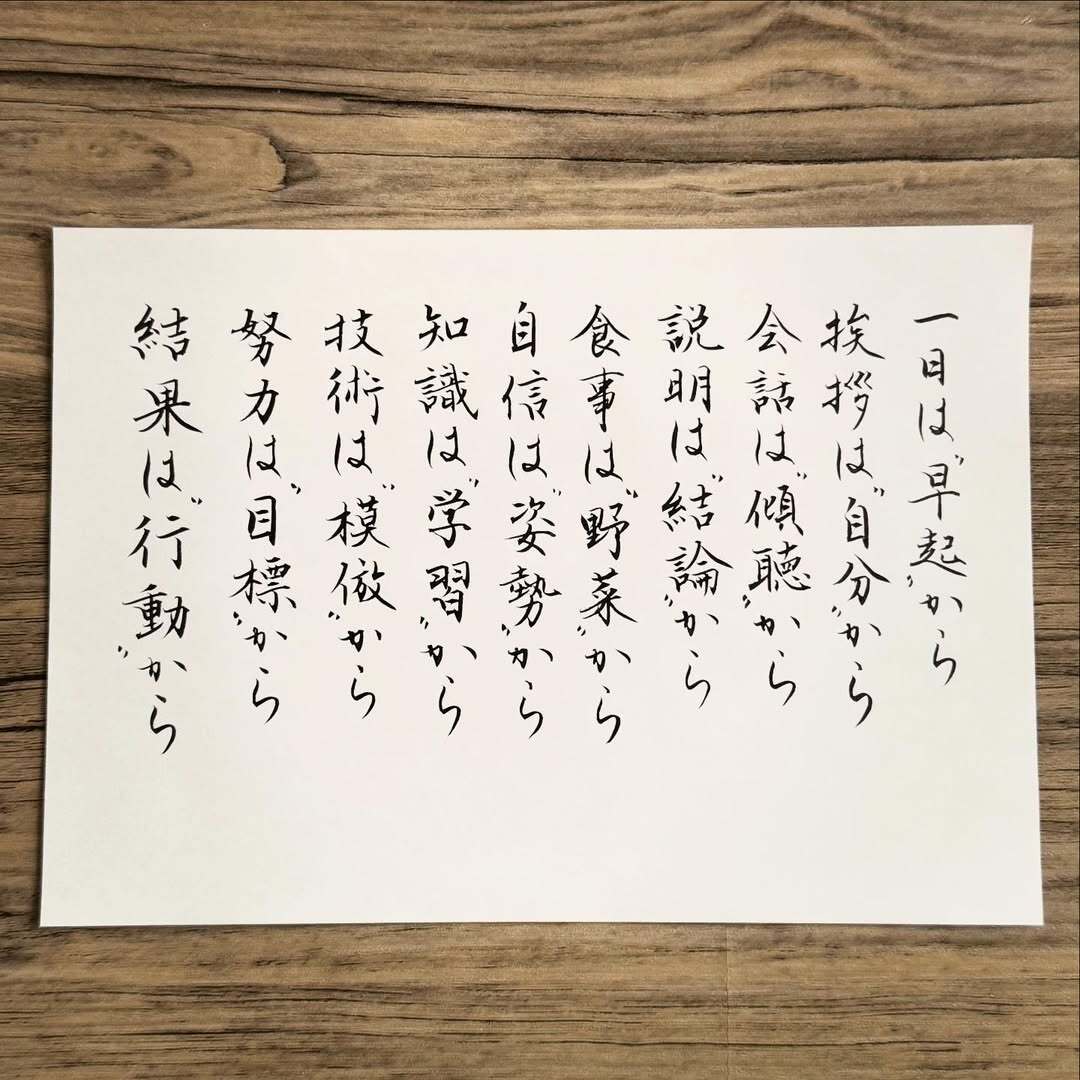 一日は"早起"から
挨拶は"自分"から
会話は"傾聴"から
説明は"結論"から
食事は"野菜"から
自信は"姿勢"から
知識は"学習"から
技術は"模倣"から
努力は"目標"から
結果は"行動"から